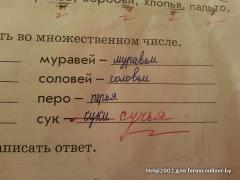 воробьи, хлопья, пальто,
ть во множественном числе.
муравей – муравьи
соловей – соловьи
перо – перья
сук – суки сучья
аписать ответ.
Helgi2002 для forum.onliner.by